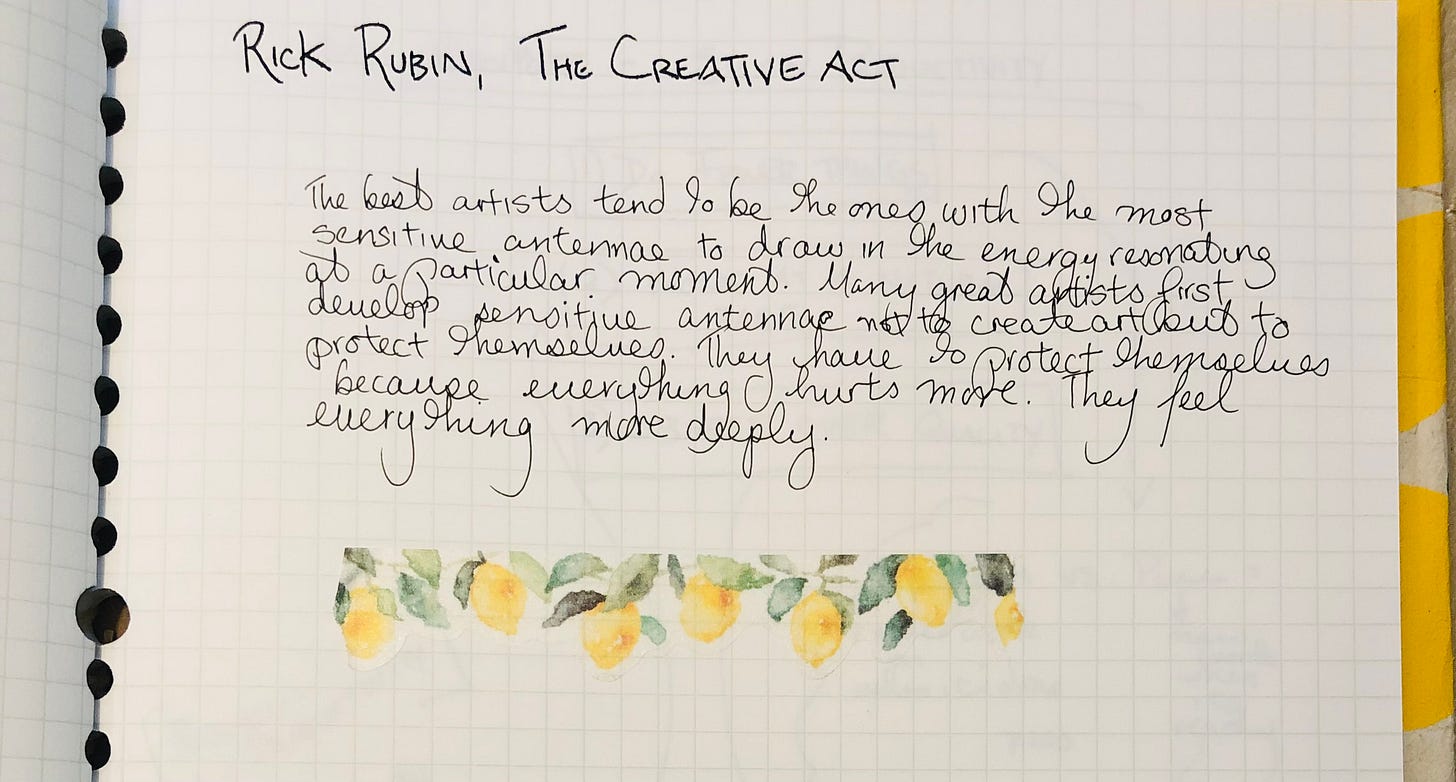 RICK RUBIN, THE CREATIVE ACT
The best artists tend to be the ones with the most
sensitive antennae to draw in the energy resonating
at a particular moment. Many great artists first
develop sensitive antennae not to create art but to
protect themselves. They have to protect themselves
because everything hurts more. They feel
everything more deeply.